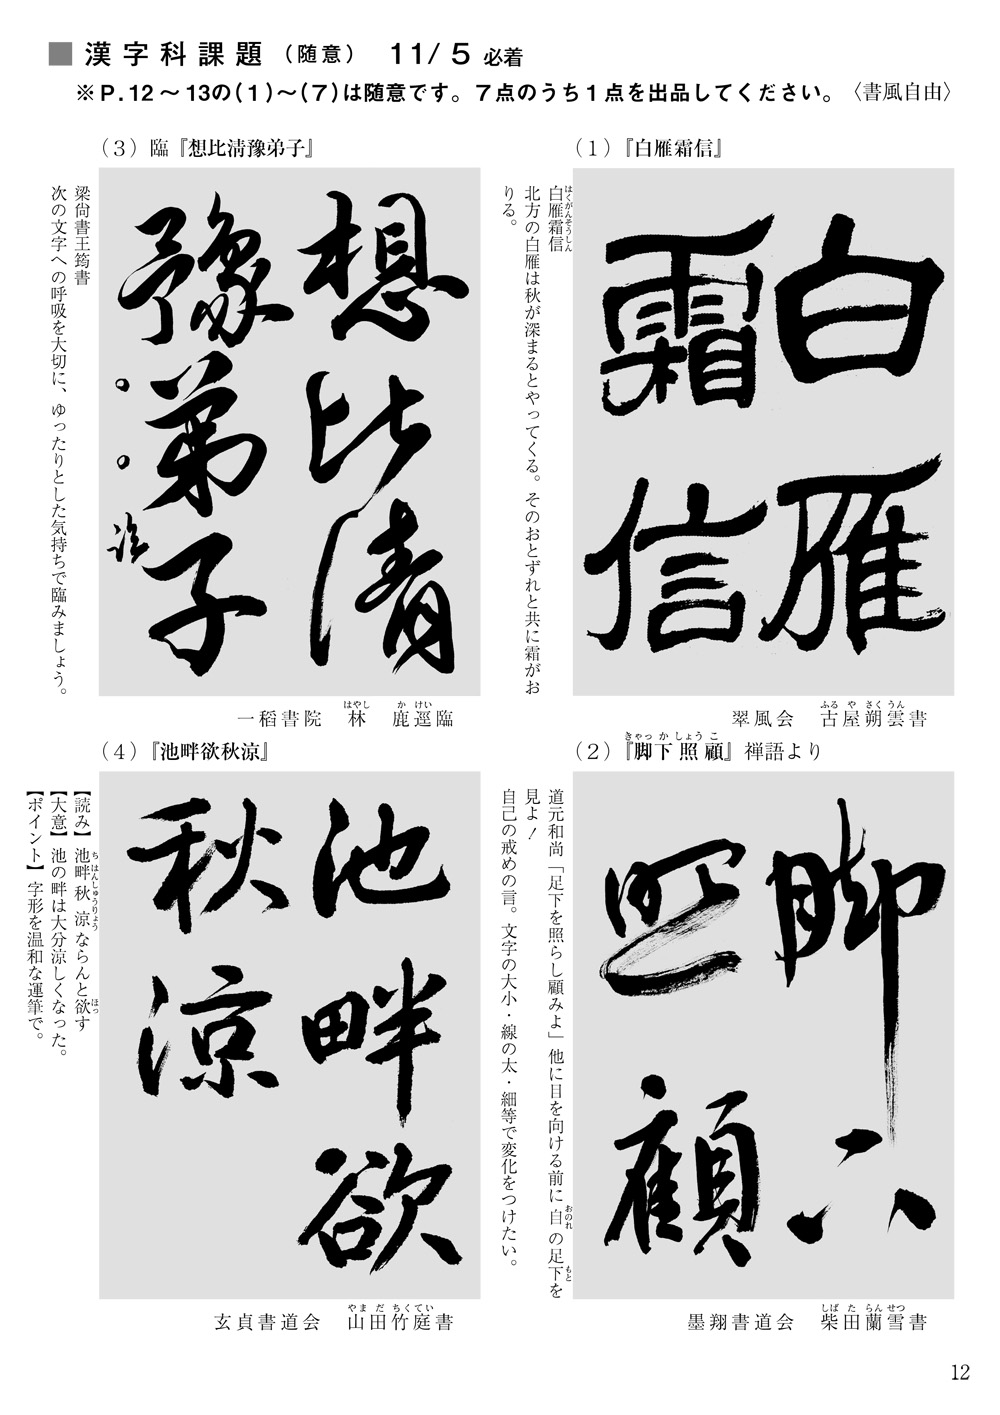 ■漢字科課題（随意） 11/5必着
※P.12～13の(1)～(7)は随意です。7点のうち1点を出品してください。〈書風自由〉
（1）『白雁霜信』
白雁
霜信
はくがんそうしん
白雁霜信
北方の白雁は秋が深まるとやってくる。そのおとずれと共に霜がお
りる。
ふるや さくうん
翠風会 古屋朔雲書
きゃっかしょうこ
（2）『脚下照顧』禅語より
脚下
照顧
道元和尚「足下を照らし顧みよ」他に目を向ける前に自の足下を
おのれ もと
見よ！
自己の戒めの言。文字の大小・線の太・細等で変化をつけたい。
しばた らんせつ
墨翔書道会 柴田蘭雪書
（3）臨『想比淸豫弟子』
想比清
豫弟子
臨
梁尙書王筠書
次の文字への呼吸を大切に、ゆったりとした気持ちで臨みましょう。
はやし かけい
一稻書院 林 鹿逕臨
（4）『池畔欲秋涼』
池畔欲
秋涼
【読み】池畔秋涼ならんと欲す
ちはんしゅうりょう ほっ
【大意】池の畔は大分涼しくなった。
【ポイント】字形を温和な運筆で。
やまだ ちくてい
玄貞書道会 山田竹庭書
12